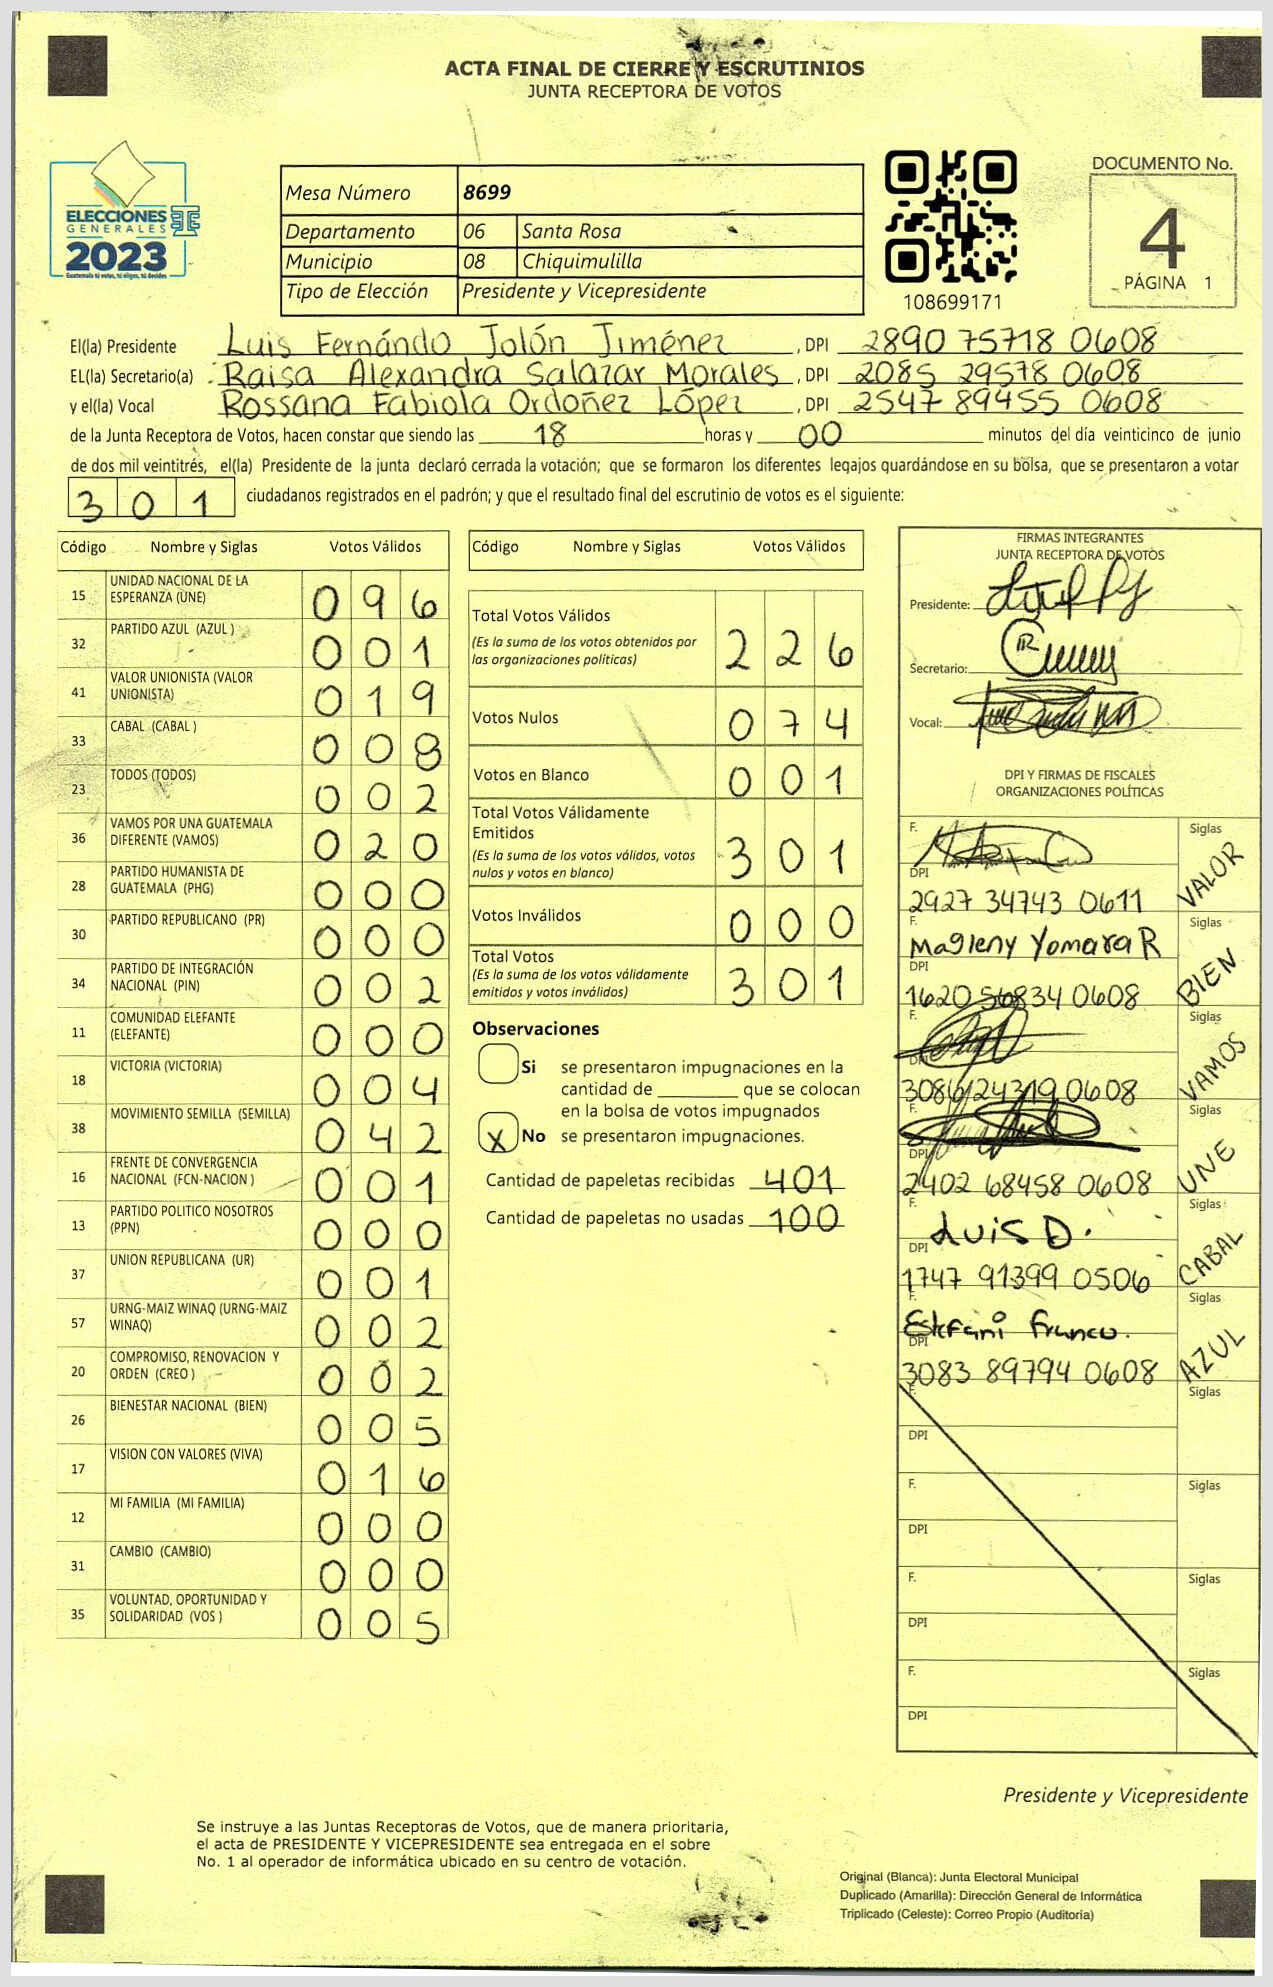 ACTA FINAL DE CIERRE Y ESCRUTINIOS
JUNTA RECEPTORA DE VOTOS
ELECCIONES
GENERALES
2023
Guatemala tú votas, tú eliges, tú decides
Mesa Número 8699
Departamento 06 Santa Rosa
Municipio 08 Chiquimulilla
Tipo de Elección Presidente y Vicepresidente
108699171
DOCUMENTO No.
4
PÁGINA 1
El(la) Presidente Luis Fernándo Jolón Jiménez , DPI 2890 75718 0608
EL(la) Secretario(a) Raisa Alexandra Salazar Morales , DPI 2085 29578 0608
y el(la) Vocal Rossana Fabiola Ordoñez López , DPI 2547 89455 0608
de la Junta Receptora de Votos, hacen constar que siendo las 18 horas y 00 minutos del día veinticinco de junio
de dos mil veintitrés, el(la) Presidente de la junta declaró cerrada la votación; que se formaron los diferentes legajos quardándose en su bolsa, que se presentaron a votar
301 ciudadanos registrados en el padrón; y que el resultado final del escrutinio de votos es el siguiente:
Código Nombre y Siglas Votos Válidos
15 UNIDAD NACIONAL DE LA ESPERANZA (UNE) 096
32 PARTIDO AZUL (AZUL ) 001
41 VALOR UNIONISTA (VALOR UNIONISTA) 019
33 CABAL (CABAL ) 008
23 TODOS (TODOS) 002
36 VAMOS POR UNA GUATEMALA DIFERENTE (VAMOS) 020
28 PARTIDO HUMANISTA DE GUATEMALA (PHG) 000
30 PARTIDO REPUBLICANO (PR) 000
34 PARTIDO DE INTEGRACIÓN NACIONAL (PIN) 002
11 COMUNIDAD ELEFANTE (ELEFANTE) 000
18 VICTORIA (VICTORIA) 004
38 MOVIMIENTO SEMILLA (SEMILLA) 042
16 FRENTE DE CONVERGENCIA NACIONAL (FCN-NACION ) 001
13 PARTIDO POLITICO NOSOTROS (PPN) 000
37 UNION REPUBLICANA (UR) 001
57 URNG-MAIZ WINAQ (URNG-MAIZ WINAQ) 002
20 COMPROMISO, RENOVACION Y ORDEN (CREO ) 002
26 BIENESTAR NACIONAL (BIEN) 005
17 VISION CON VALORES (VIVA) 016
12 MI FAMILIA (MI FAMILIA) 000
31 CAMBIO (CAMBIO) 000
35 VOLUNTAD, OPORTUNIDAD Y SOLIDARIDAD (VOS ) 005
Código Nombre y Siglas Votos Válidos
Total Votos Válidos 226
(Es la suma de los votos obtenidos por
las organizaciones políticas)
Votos Nulos 074
Votos en Blanco 001
Total Votos Válidamente
Emitidos 301
(Es la suma de los votos válidos, votos
nulos y votos en blanco)
Votos Inválidos 000
Total Votos 301
(Es la suma de los votos válidamente
emitidos y votos inválidos)
Observaciones
Si se presentaron impugnaciones en la
cantidad de ________ que se colocan
en la bolsa de votos impugnados
X No se presentaron impugnaciones.
Cantidad de papeletas recibidas 401
Cantidad de papeletas no usadas 100
FIRMAS INTEGRANTES
JUNTA RECEPTORA DE VOTOS
Presidente:
Secretario:
Vocal:
DPI Y FIRMAS DE FISCALES
ORGANIZACIONES POLÍTICAS
F. Siglas
DPI 2927 34743 0611 VALOR
F. Magleny Yomara R Siglas
DPI 1620 56834 0608 BIEN
F. Siglas
DPI 3086 24319 0608 VAMOS
F. Siglas
DPI 2402 68458 0608 UNE
F. Luis D. Siglas
DPI 1747 91399 0506 CABAL
F. Estefani Franco. Siglas
DPI 3083 89794 0608 AZUL
F. Siglas
DPI
F. Siglas
DPI
F. Siglas
DPI
F. Siglas
DPI
Presidente y Vicepresidente
Se instruye a las Juntas Receptoras de Votos, que de manera prioritaria,
el acta de PRESIDENTE Y VICEPRESIDENTE sea entregada en el sobre
No. 1 al operador de informática ubicado en su centro de votación.
Original (Blanca): Junta Electoral Municipal
Duplicado (Amarilla): Dirección General de Informática
Triplicado (Celeste): Correo Propio (Auditoría)